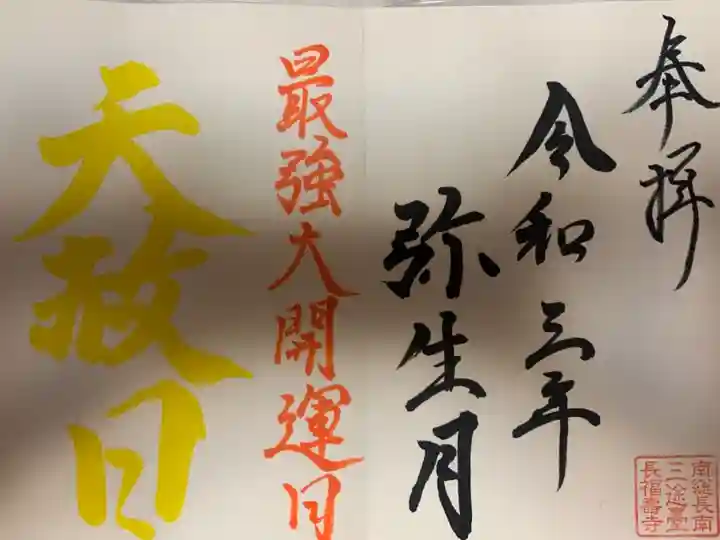 奉拝
令和三年
弥生月
最強大開運日
天赦日
南総長南
三途臺
長福壽寺